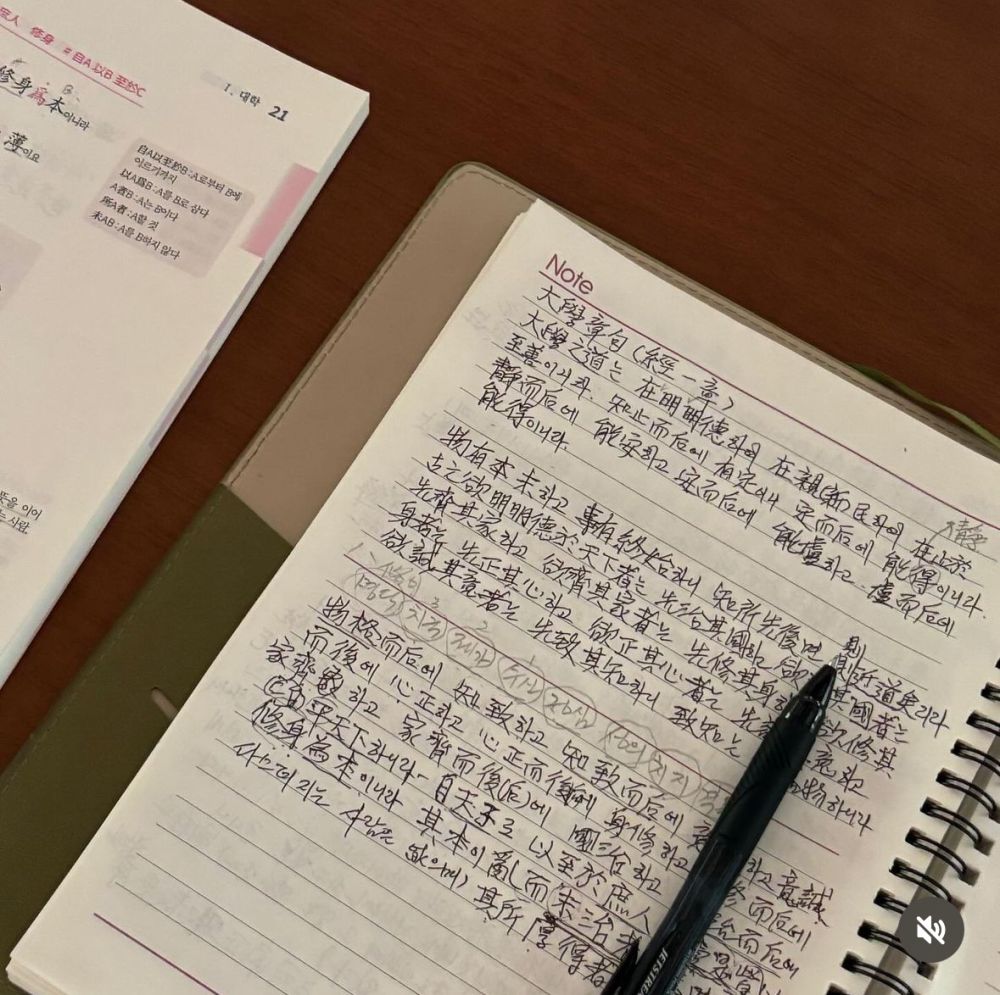 修身 # 自A以B 至於C
修身爲本이니라
薄이요
Ⅰ. 대학 21
自A以至於B : A로부터 B에
이르기까지
以A爲B : A를 B로 삼다
A者B : A는 B이다
所A者 : A할 것
未AB : A를 B하지 않다
뜻을 이어
는 사람
Note
大學章句 (經一章)
大學之道는 在明明德하며 在親(新)民하며 在止於
至善이니라. 知止而后에 有定이니 定而后에 能
靜而后에 能安하고 安而后에 能慮하고 慮而后에
能得이니라.
物有本末하고 事有終始하니 知所先後면 則近道矣리라
古之欲明明德於天下者는 先治其國하고 欲 其國者는
先齊其家하고 欲齊其家者는 先修其身 欲修其
身者는 先正其心하고 欲正其心者는 先 意하고
欲誠其意者는 先致其知하니 致知는 物하니라
物格而后에 知致하고 知致而后에 意 하고 意誠
而後에 心正하고 心正而後에 身修하고 身修而后에
家齊 하고 家齊而後(后)에 國治하고 國治而后에
平天下하니라. 自天子로 以至於庶人
修身為本이니라 其本이 亂而末治者
사람은 없(으며) 其所厚得者
JETSTREAM